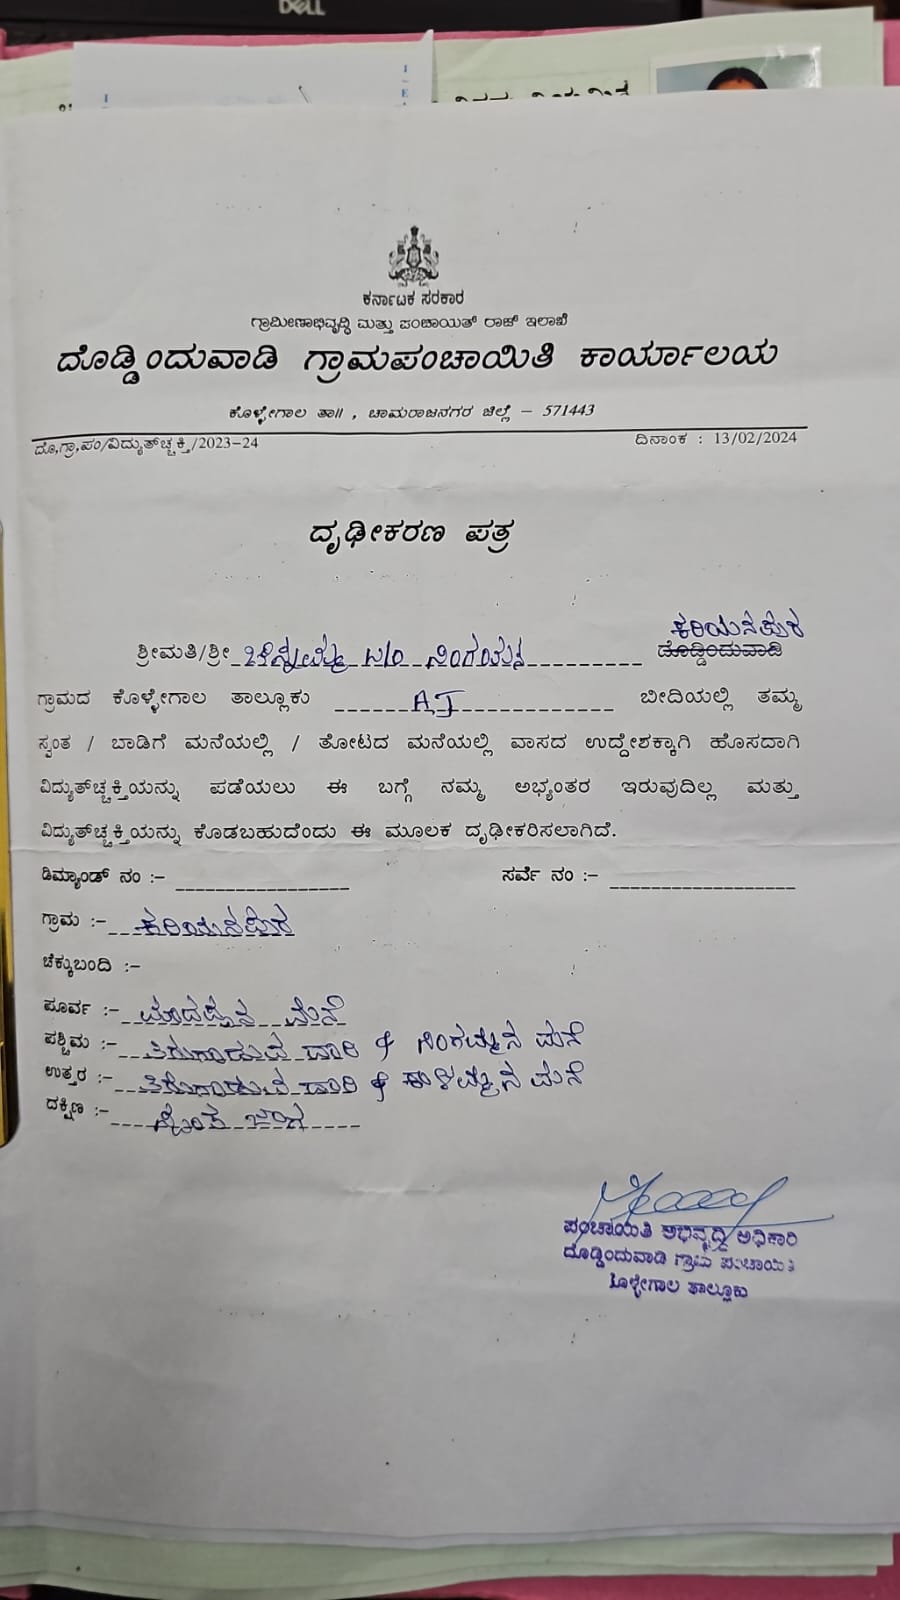 DELL
ಕರ್ನಾಟಕ ಸರಕಾರ
ಗ್ರಾಮೀಣಾಭಿವೃದ್ಧಿ ಮತ್ತು ಪಂಚಾಯತ್ ರಾಜ್ ಇಲಾಖೆ
ದೊಡ್ಡಿಂದುವಾಡಿ ಗ್ರಾಮಪಂಚಾಯಿತಿ ಕಾರ್ಯಾಲಯ
ಕೊಳ್ಳೇಗಾಲ ತಾ॥ , ಚಾಮರಾಜನಗರ ಜಿಲ್ಲೆ – 571443
ದೊ,ಗ್ರಾ,ಪಂ/ವಿದ್ಯುತ್‌ಚ್ಚಕ್ತಿ/2023-24 ದಿನಾಂಕ : 13/02/2024
ದೃಢೀಕರಣ ಪತ್ರ
ಕರಿಯನಪುರ
ಶ್ರೀಮತಿ/ಶ್ರೀ ದೊಡ್ಡಿಂದುವಾಡಿ
ಗ್ರಾಮದ ಕೊಳ್ಳೇಗಾಲ ತಾಲ್ಲೂಕು AJ ಬೀದಿಯಲ್ಲಿ ತಮ್ಮ
ಸ್ವಂತ / ಬಾಡಿಗೆ ಮನೆಯಲ್ಲಿ / ತೋಟದ ಮನೆಯಲ್ಲಿ ವಾಸದ ಉದ್ದೇಶಕ್ಕಾಗಿ ಹೊಸದಾಗಿ
ವಿದ್ಯುತ್‌ಚ್ಚಕ್ತಿಯನ್ನು ಪಡೆಯಲು ಈ ಬಗ್ಗೆ ನಮ್ಮ ಅಭ್ಯಂತರ ಇರುವುದಿಲ್ಲ ಮತ್ತು
ವಿದ್ಯುತ್‌ಚ್ಚಕ್ತಿಯನ್ನು ಕೊಡಬಹುದೆಂದು ಈ ಮೂಲಕ ದೃಢೀಕರಿಸಲಾಗಿದೆ.
ಡಿಮ್ಯಾಂಡ್ ನಂ :- ಸರ್ವೆ ನಂ :-
ಗ್ರಾಮ :- ಕರಿಯನಪುರ
ಚೆಕ್ಕುಬಂದಿ :-
ಪೂರ್ವ :- ಮಾದಪ್ಪನ ಮನೆ
ಪಶ್ಚಿಮ :- ತಿರುಗಾಡುವ ದಾರಿ & ನಿಂಗಮ್ಮನ ಮನೆ
ಉತ್ತರ :- ತಿರುಗಾಡುವ ದಾರಿ & ಕಾಳಮ್ಮನ ಮನೆ
ದಕ್ಷಿಣ :- ಸ್ವಂತ ಜಾಗ
ಪಂಚಾಯಿತಿ ಅಭಿವೃದ್ಧಿ ಅಧಿಕಾರಿ
ದೊಡ್ಡಿಂದುವಾಡಿ ಗ್ರಾಮ ಪಂಚಾಯಿತಿ
ಕೊಳ್ಳೇಗಾಲ ತಾಲ್ಲೂಕು